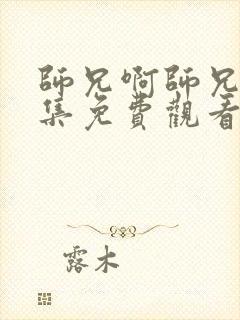 師兄啊師兄
集免費觀看
露木